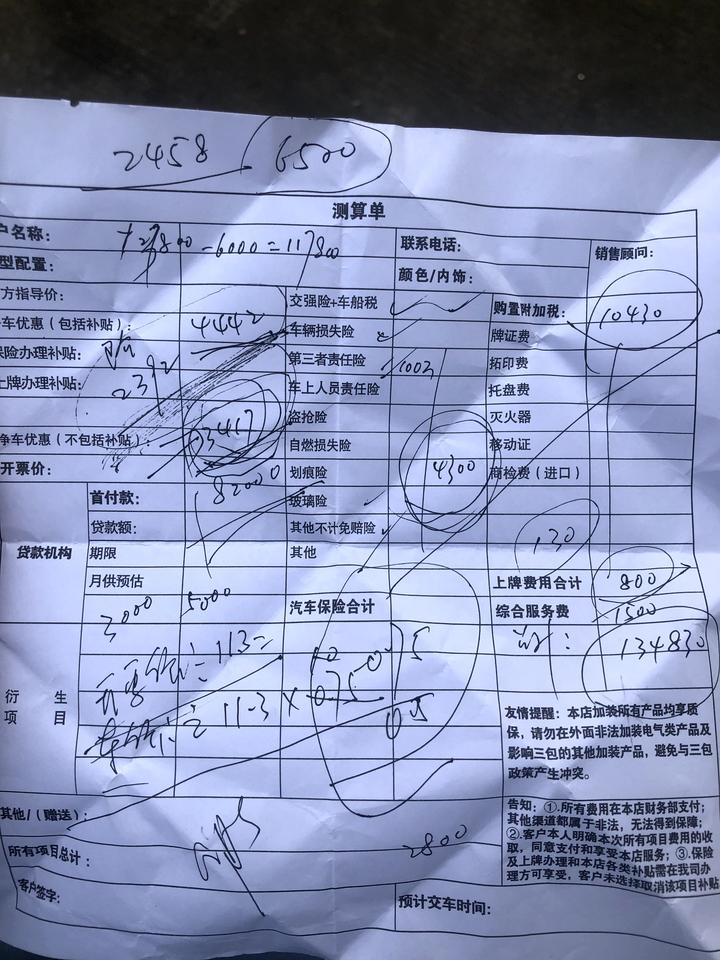 2458 6500
测算单
户名称:
800-6000=117800
联系电话:
销售顾问:
型配置:
颜色/内饰:
方指导价:
交强险+车船税
购置附加税:
10430
车优惠（包括补贴）:
4442
车辆损失险
牌证费
保险办理补贴:
第三者责任险
1003
拓印费
上牌办理补贴:
2392
车上人员责任险
托盘费
盗抢险
灭火器
净车优惠（不包括补贴）:
13417
自燃损失险
4300
移动证
开票价:
82000
划痕险
商检费（进口）
首付款:
玻璃险
贷款额:
其他不计免赔险
130
贷款机构
期限
其他
月供预估
上牌费用合计
800
3000 5000
汽车保险合计
综合服务费
1500
134830
113=
衍 生
项 目
11.3 ×
友情提醒：本店加装所有产品均享质
保，请勿在外面非法加装电气类产品及
影响三包的其他加装产品，避免与三包
政策产生冲突。
其他/（赠送）:
告知：①.所有费用在本店财务部支付；
其他渠道都属于非法，无法得到保障；
②.客户本人明确本次所有项目费用的收
取，同意支付和享受本店服务；③.保险
及上牌办理和本店各类补贴需在我司办
理方可享受，客户未选择取消该项目补贴
所有项目总计:
2800
客户签字:
预计交车时间: